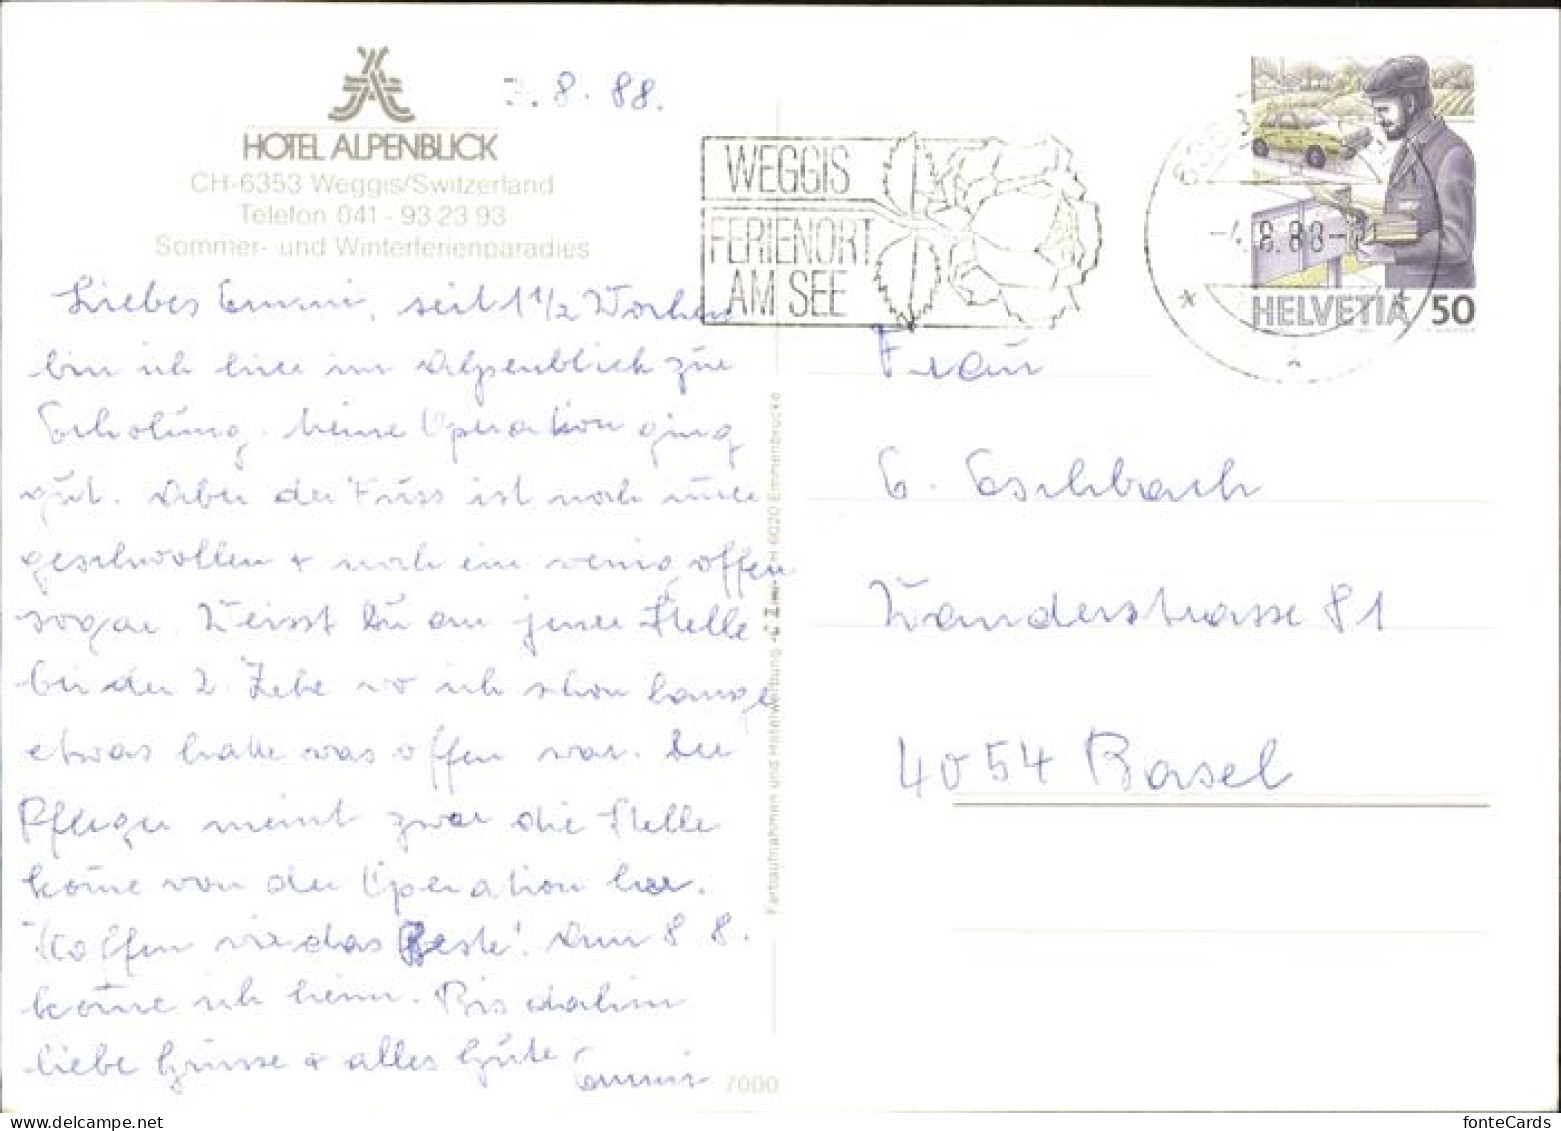 HOTEL ALPENBLICK
CH-6353 Weggis/Switzerland
Telefon 041 - 93 23 93
Sommer- und Winterferienparadies
3. 8. 88.
Liebes Emmi, seit 1 1/2 Wochen
bin ich hier im Alpenblick zur
Erholung. Meine Operation ging
gut. Aber der Fuss ist noch immer
geschwollen + noch ein wenig offen
sogar. Weisst Du an jener Stelle
bei der 2. Zehe wo ich schon lange
etwas hatte was offen war. Der
Pfleger meint zwar die Stelle
kome von der Operation her.
Hoffen wir das Beste! Am 8 8.
kome ich heim. Bis dahin
liebe Grüsse + alles Gute Emmi
7000
Farbaufnahmen und Hotelwerbung CH 6020 Emmenbrücke
WEGGIS
FERIENORT
AM SEE
8.88
HELVETIA 50
Frau
E. Eschbach
Wanderstrasse 81
4054 Basel
fonteCards